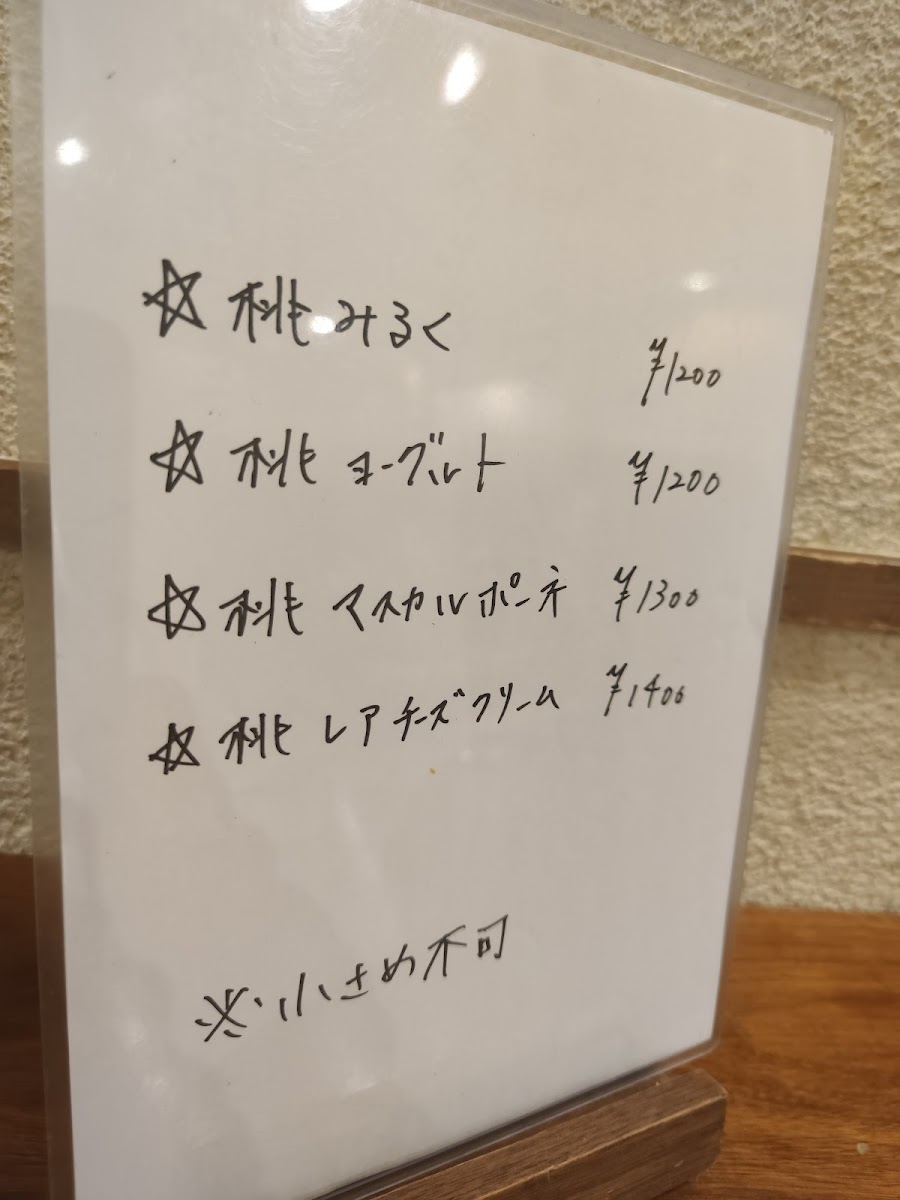 ☆ 桃みるく ¥1200
☆ 桃 ヨーグルト ¥1200
☆ 桃 マスカルポーネ ¥1300
☆ 桃 レアチーズクリーム ¥1400
※小さめ不可